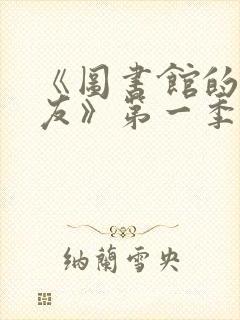 《圖書館的
友》第一季
納蘭雪央